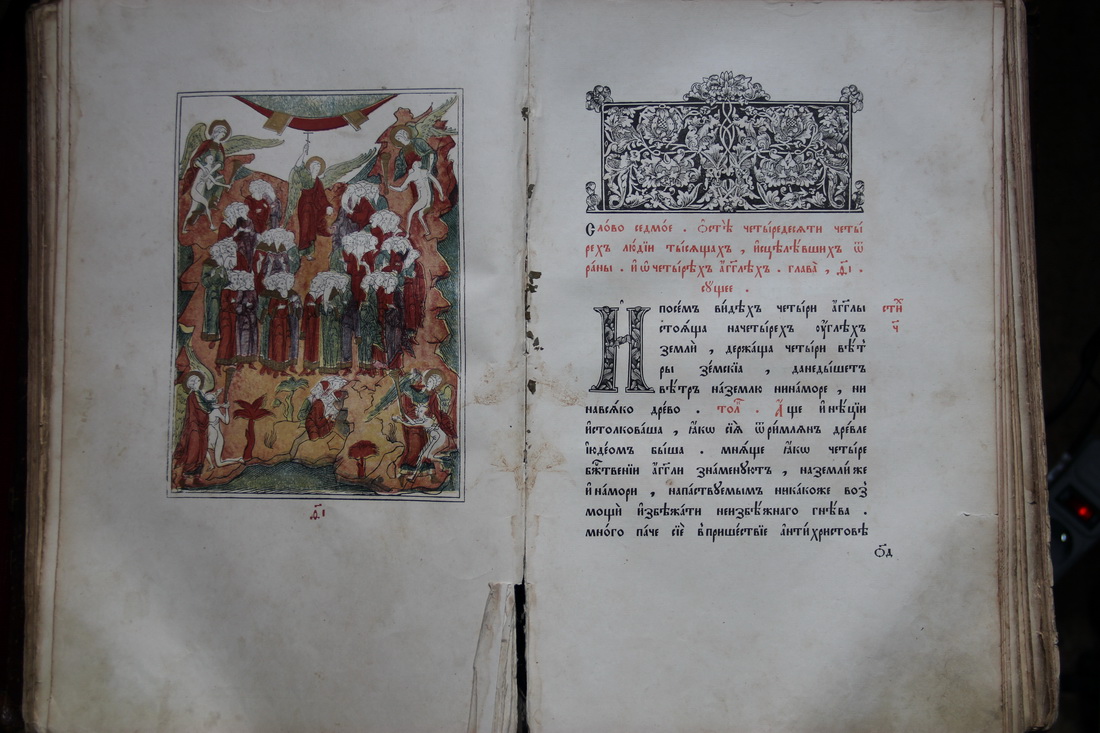 а҃і
Сло́во седмо́е . Ѻ҆стѣ́ѣ четы́редесѧти четы
рехъ лю́дїи ты́сѧщахъ , и҆сцѣлѣ́вшихъ ѿ
ра́ны . и҆ ѡ҆четы́рехъ а҆́гг҃лѣхъ . глава̀ , а҃і .
су́щее .
И҆ посе́мъ ви́дѣхъ четы́ри а҆́гг҃лы
стоѧ́ща начеты́рехъ ѹ҆́глѣхъ
землѝ , держа́ща четы́ри вѣ́т
ры зе́мскїѧ , данеды́шетъ
вѣ́тръ на́землю нина́море , ни
навсѧ́ко дре́во . тол . А҆́ще и҆нѣ́цїи
и҆столкова́ша , ꙗ҆́кѡ сїѧ̀ ѿри́млѧнъ дре́вле
і҆юде́ѡм бы́ша . мнѧ́ще ꙗ҆́кѡ четы́ре
бж҃твенїи а҆́гг҃ли зна́менуютъ , на́землѝже
и҆на́мори , напа́ствуемымъ ника́коже воз
мощѝ и҆збѣжа́ти неизбѣ́жнаго гнѣ́ва .
мно́го па́че сїѐ в̾прише́ствїе а҆нтїхри́стовѣ
сти
ч҃
ѻ҃д